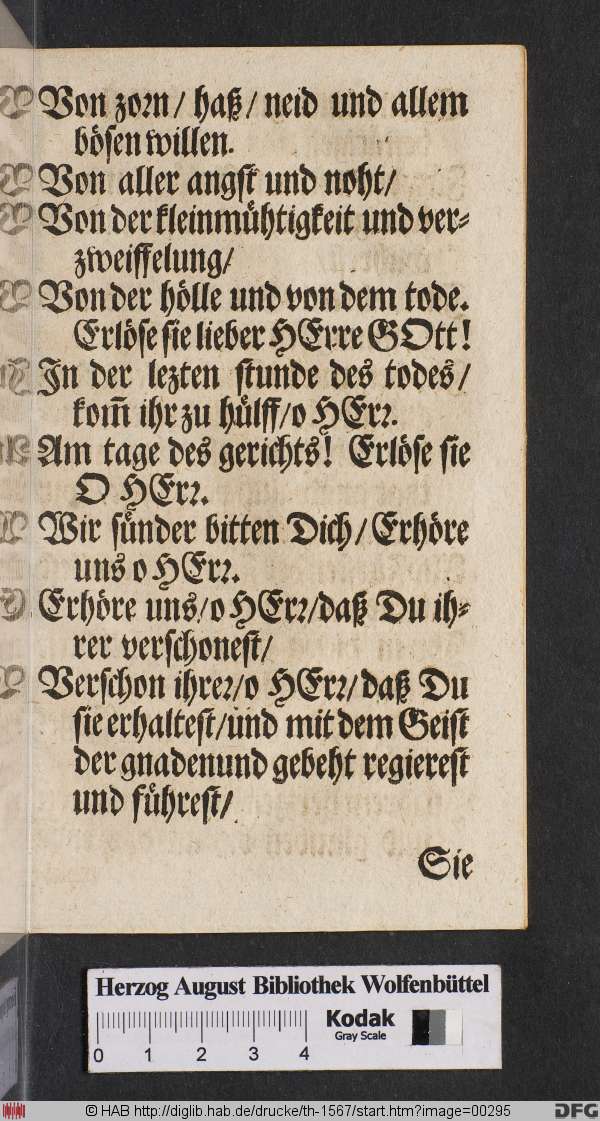 Von zorn/ haß/ neid und allem
bösen willen.
Von aller angst und noht/
Von der kleinmühtigkeit und ver-
zweiffelung/
Von der hölle und von dem tode.
Erlöse sie lieber HErre GOtt!
In der lezten stunde des todes/
kom̃ ihr zu hülff/o HErr.
Am tage des gerichts! Erlöse sie
O HErr.
Wir sünder bitten Dich/ Erhöre
uns o HErr.
Erhöre uns/o HErr/daß Du ih-
rer verschonest/
Verschon ihrer/o HErr/daß Du
sie erhaltest/und mit dem Geist
der gnaden und gebeht regierest
und führest/
Sie
Herzog August Bibliothek Wolfenbüttel
Kodak
Gray Scale
0 1 2 3 4
© HAB http://diglib.hab.de/drucke/th-1567/start.htm?image=00295
DFG